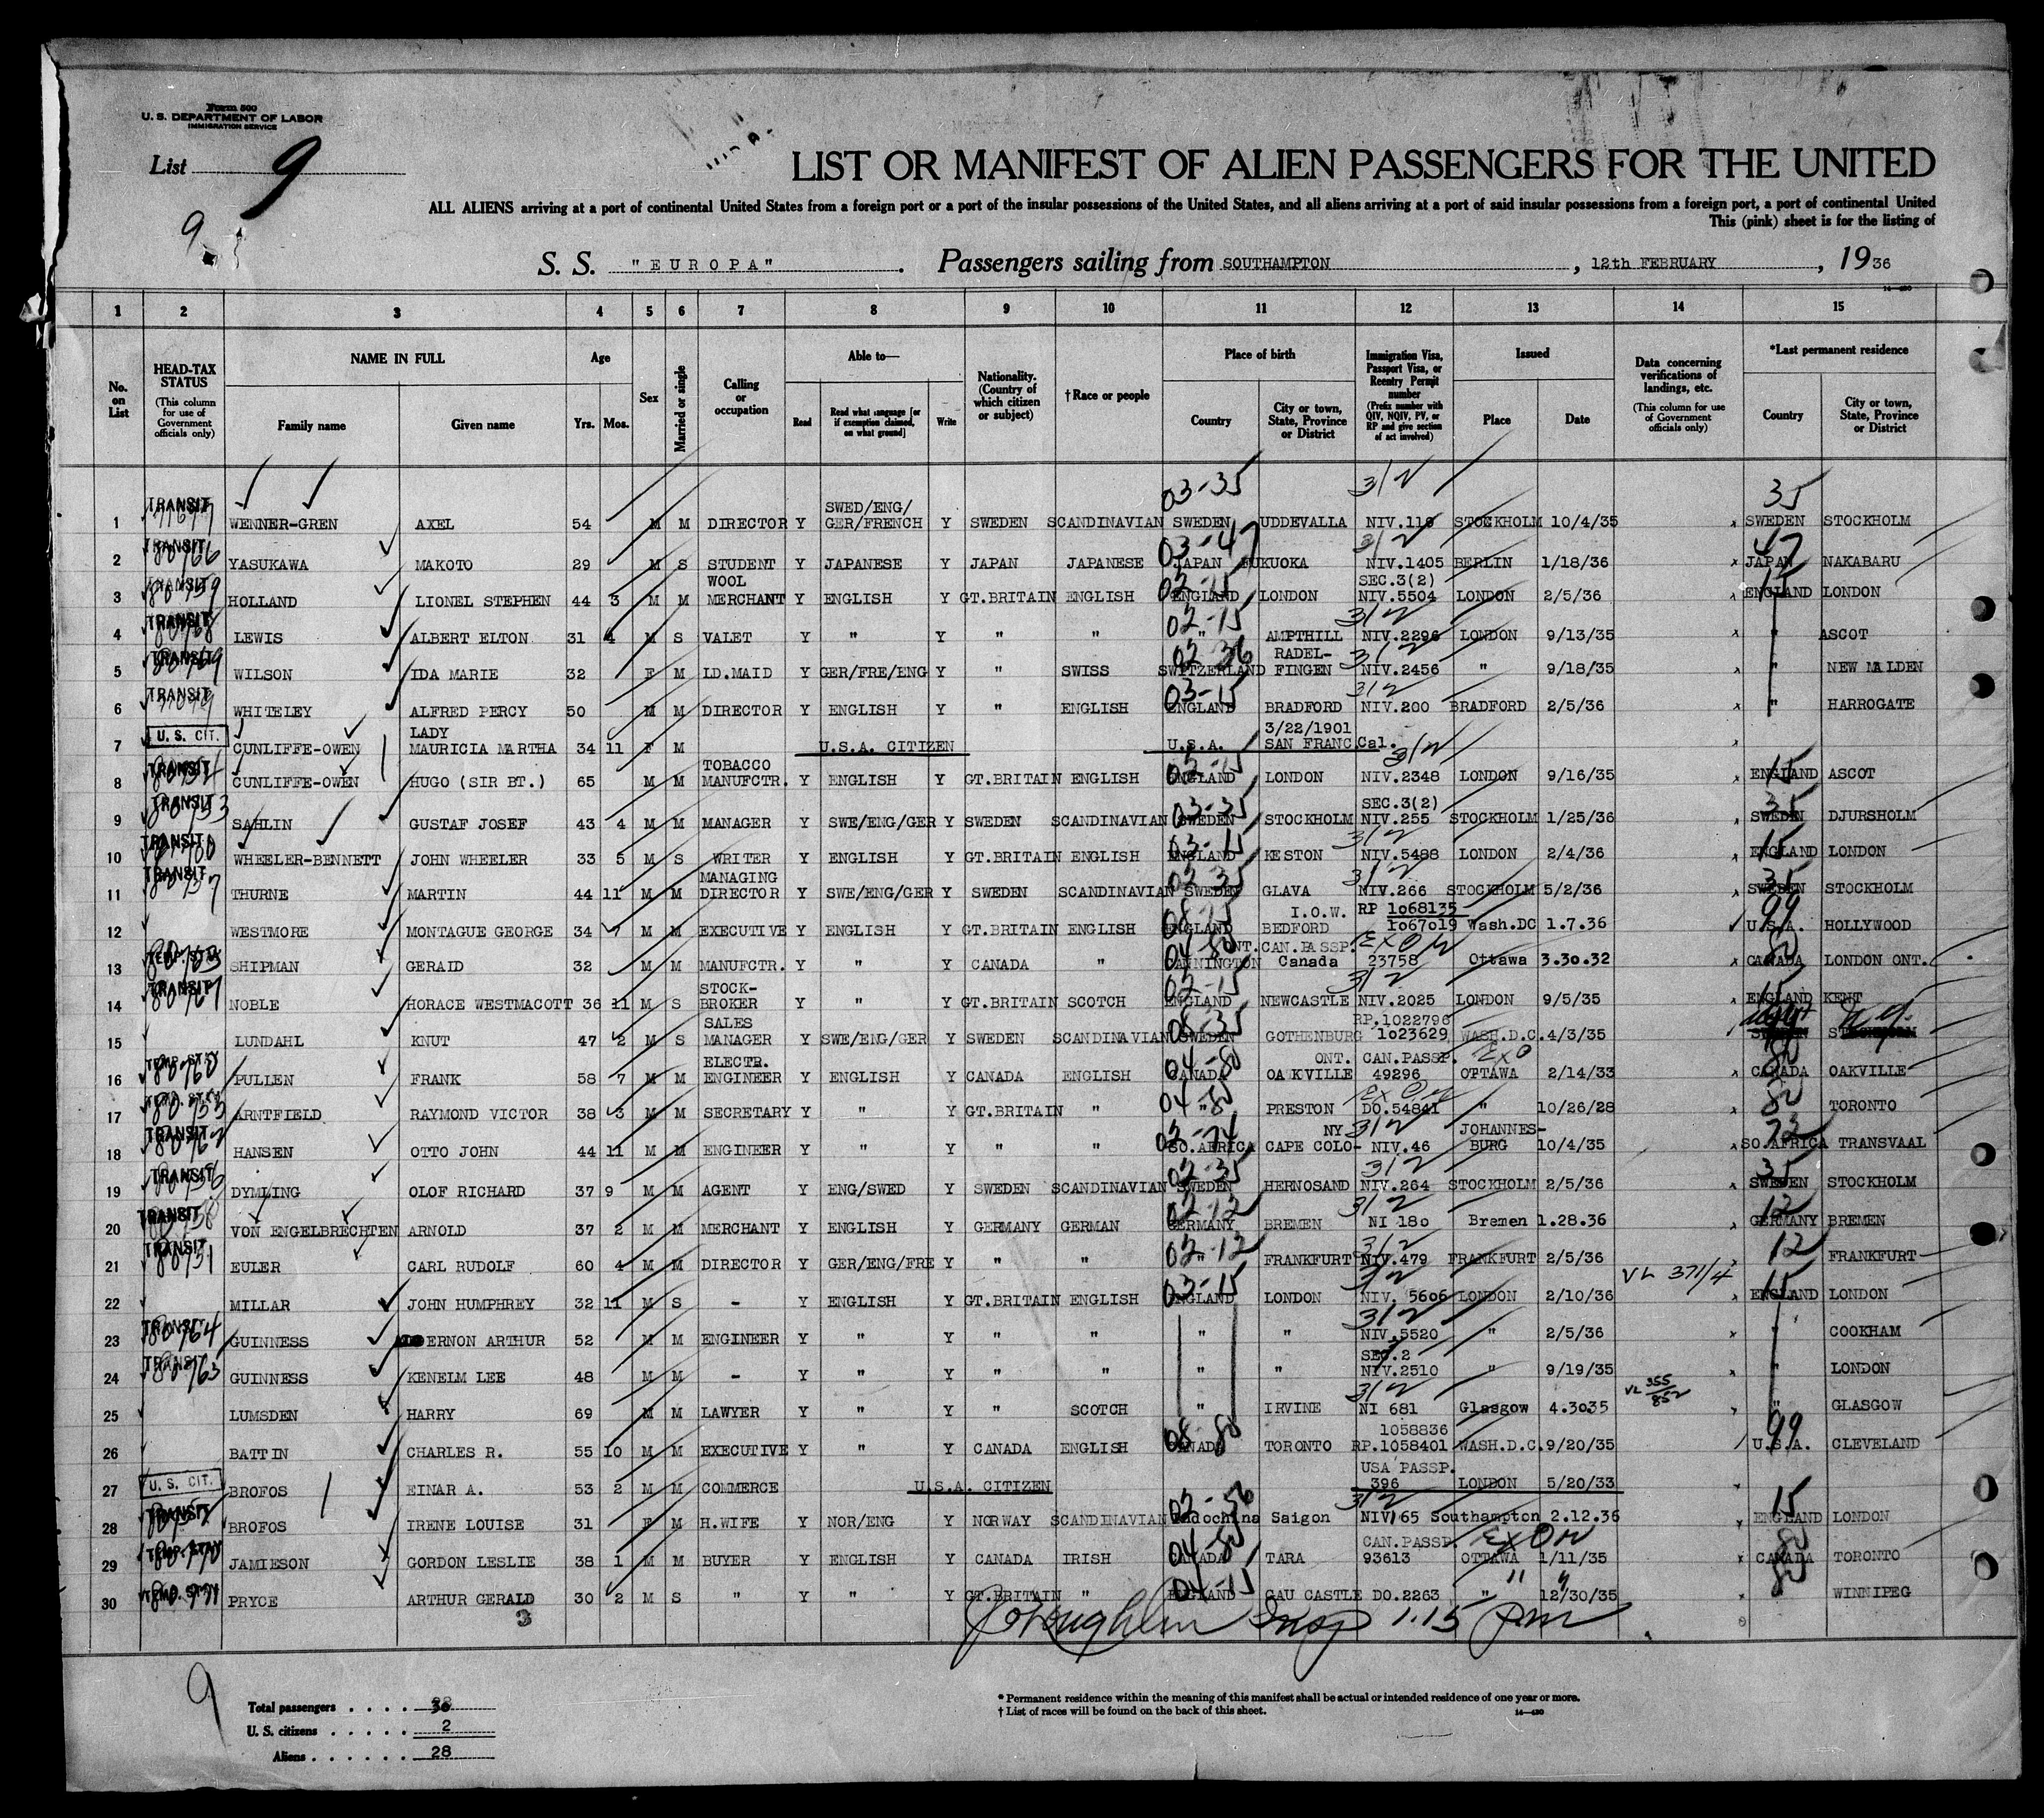 Form 500
U. S. DEPARTMENT OF LABOR
IMMIGRATION SERVICE
List 9
9
LIST OR MANIFEST OF ALIEN PASSENGERS FOR THE UNITED
ALL ALIENS arriving at a port of continental United States from a foreign port or a port of the insular possessions of the United States, and all aliens arriving at a port of said insular possessions from a foreign port, a port of continental United
This (pink) sheet is for the listing of
S. S. "EUROPA" . Passengers sailing from SOUTHAMPTON , 12th FEBRUARY , 1936
14—430
1 2 3 4 5 6 7 8 9 10 11 12 13 14 15
No. on List
HEAD-TAX STATUS (This column for use of Government officials only)
NAME IN FULL
Family name Given name
Age
Yrs. Mos.
Sex
Married or single
Calling or occupation
Able to—
Read Read what language [or if exemption claimed, on what ground] Write
Nationality. (Country of which citizen or subject)
†Race or people
Place of birth
Country City or town, State, Province or District
Immigration Visa, Passport Visa, or Reentry Permit number (Prefix number with QIV, NQIV, PV, or RP and give section of act involved)
Issued
Place Date
Data concerning verifications of landings, etc. (This column for use of Government officials only)
*Last permanent residence
Country City or town, State, Province or District
03-35 3/2 35
1 TRANSIT WENNER-GREN AXEL 54 M M DIRECTOR Y SWED/ENG/ GER/FRENCH Y SWEDEN SCANDINAVIAN SWEDEN UDDEVALLA NIV.110 STOCKHOLM 10/4/35 SWEDEN STOCKHOLM
03-47 3/2 47
2 TRANSIT 80766 YASUKAWA MAKOTO 29 M S STUDENT Y JAPANESE Y JAPAN JAPANESE JAPAN FUKUOKA NIV.1405 BERLIN 1/18/36 JAPAN NAKABARU
02-15 15
3 TRANSIT HOLLAND LIONEL STEPHEN 44 3 M M WOOL MERCHANT Y ENGLISH Y GT.BRITAIN ENGLISH ENGLAND LONDON SEC.3(2) NIV.5504 LONDON 2/5/36 ENGLAND LONDON
02-15 3/2
4 TRANSIT LEWIS ALBERT ELTON 31 4 M S VALET Y " Y " " " AMPTHILL NIV.2296 LONDON 9/13/35 " ASCOT
02-36 3/2
5 TRANSIT WILSON IDA MARIE 32 F M LD.MAID Y GER/FRE/ENG Y " SWISS SWITZERLAND RADEL-FINGEN NIV.2456 " 9/18/35 " NEW MALDEN
03-15 3/2
6 TRANSIT WHITELEY ALFRED PERCY 50 M M DIRECTOR Y ENGLISH Y " ENGLISH ENGLAND BRADFORD NIV.200 BRADFORD 2/5/36 " HARROGATE
7 U. S. CIT. CUNLIFFE-OWEN LADY MAURICIA MARTHA 34 11 F M U.S.A. CITIZEN U.S.A. 3/22/1901 SAN FRANC Cal.
02-15 3/2 15
8 TRANSIT CUNLIFFE-OWEN HUGO (SIR BT.) 65 M M TOBACCO MANUFCTR. Y ENGLISH Y GT.BRITAIN ENGLISH ENGLAND LONDON NIV.2348 LONDON 9/16/35 ENGLAND ASCOT
03-35 35
9 TRANSIT SAHLIN GUSTAF JOSEF 43 4 M M MANAGER Y SWE/ENG/GER Y SWEDEN SCANDINAVIAN SWEDEN STOCKHOLM SEC.3(2) NIV.255 STOCKHOLM 1/25/36 SWEDEN DJURSHOLM
03-15 3/2 15
10 TRANSIT WHEELER-BENNETT JOHN WHEELER 33 5 M S WRITER Y ENGLISH Y GT.BRITAIN ENGLISH ENGLAND KESTON NIV.5488 LONDON 2/4/36 ENGLAND LONDON
02-35 3/2 35
11 TRANSIT THURNE MARTIN 44 11 M M MANAGING DIRECTOR Y SWE/ENG/GER Y SWEDEN SCANDINAVIAN SWEDEN GLAVA NIV.266 STOCKHOLM 5/2/36 SWEDEN STOCKHOLM
08-15 99
12 WESTMORE MONTAGUE GEORGE 34 7 M M EXECUTIVE Y ENGLISH Y GT.BRITAIN ENGLISH ENGLAND I.O.W. BEDFORD RP 1o68135 1o67o19 Wash.DC 1.7.36 U.S.A. HOLLYWOOD
04-80 EXON 80
13 TEMP. STAY SHIPMAN GERAID 32 M M MANUFCTR. Y " Y CANADA " CANNINGTON ONT. Canada CAN.PASSP. 23758 Ottawa 3.30.32 CANADA LONDON ONT.
02-15 3/2 15
14 TRANSIT NOBLE HORACE WESTMACOTT 36 11 M S STOCK-BROKER Y " Y GT.BRITAIN SCOTCH ENGLAND NEWCASTLE NIV.2025 LONDON 9/5/35 ENGLAND KENT
08-35
15 LUNDAHL KNUT 47 2 M S SALES MANAGER Y SWE/ENG/GER Y SWEDEN SCANDINAVIAN SWEDEN GOTHENBURG RP.1022796 1o23629 WASH.D.C. 4/3/35 SWEDEN STOCKHOLM N.Y.
04-80 EXO 80
16 TEMP. STAY 80760 PULLEN FRANK 58 7 M M ELECTR. ENGINEER Y ENGLISH Y CANADA ENGLISH CANADA ONT. OAKVILLE CAN.PASSP. 49296 OTTAWA 2/14/33 CANADA OAKVILLE
04-80 EXON 80
17 TEMP. STAY ARNTFIELD RAYMOND VICTOR 38 3 M M SECRETARY Y " Y GT.BRITAIN " " PRESTON DO.54841 " 10/26/28 TORONTO
02-74 3/2 73
18 TRANSIT 80762 HANSEN OTTO JOHN 44 11 M M ENGINEER Y " Y " " SO.AFRICA CAPE COLO-NY NIV.46 JOHANNES-BURG 10/4/35 SO.AFRICA TRANSVAAL
02-35 3/2 35
19 TRANSIT DYMLING OLOF RICHARD 37 9 M M AGENT Y ENG/SWED Y SWEDEN SCANDINAVIAN SWEDEN HERNOSAND NIV.264 STOCKHOLM 2/5/36 SWEDEN STOCKHOLM
02-12 3/2 12
20 TRANSIT VON ENGELBRECHTEN ARNOLD 37 2 M M MERCHANT Y ENGLISH Y GERMANY GERMAN GERMANY BREMEN NI 18o Bremen 1.28.36 GERMANY BREMEN
02-12 3/2 12
21 TRANSIT EULER CARL RUDOLF 60 4 M M DIRECTOR Y GER/ENG/FRE Y " " " FRANKFURT NIV.479 FRANKFURT 2/5/36 FRANKFURT
03-15 3/2 VL 371/4 15
22 MILLAR JOHN HUMPHREY 32 11 M S - Y ENGLISH Y GT.BRITAIN ENGLISH ENGLAND LONDON NIV. 56o6 LONDON 2/10/36 ENGLAND LONDON
3/2
23 TRANSIT 80764 GUINNESS ERNON ARTHUR 52 M M ENGINEER Y " Y " " " " NIV.5520 " 2/5/36 " COOKHAM
24 TRANSIT 80763 GUINNESS KENELM LEE 48 M M - Y " Y " " " " SEC.2 NIV.2510 " 9/19/35 " LONDON
3/2 VL 355/852
25 LUMSDEN HARRY 69 M M LAWYER Y " Y " SCOTCH " IRVINE NI 681 Glasgow 4.3o35 " GLASGOW
08-80 99
26 BATTIN CHARLES R. 55 10 M M EXECUTIVE Y " Y CANADA ENGLISH CANADA TORONTO 1058836 RP.1058401 WASH.D.C. 9/20/35 U.S.A. CLEVELAND
27 U. S. CIT. BROFOS EINAR A. 53 2 M M COMMERCE U.S.A. CITIZEN USA PASSP. 396 LONDON 5/20/33
02-56 3/2 15
28 TRANSIT BROFOS IRENE LOUISE 31 F M H.WIFE Y NOR/ENG Y NORWAY SCANDINAVIAN Indochina Saigon NIV 65 Southampton 2.12.36 ENGLAND LONDON
04-80 EXON 80
29 TEMP. STAY JAMIESON GORDON LESLIE 38 1 M M BUYER Y ENGLISH Y CANADA IRISH CANADA TARA CAN.PASSP. 93613 OTTAWA 1/11/35 CANADA TORONTO
04-15 " " 80
30 TEMP. STAY PRYCE ARTHUR GERALD 30 2 M S " Y " Y GT.BRITAIN " ENGLAND GAU CASTLE DO.2263 " 12/30/35 WINNIPEG
3
Insp 1.15 pm
9
Total passengers . . . . 30
U. S. citizens . . . . . 2
Aliens . . . . . . 28
* Permanent residence within the meaning of this manifest shall be actual or intended residence of one year or more.
† List of races will be found on the back of this sheet.
14—430